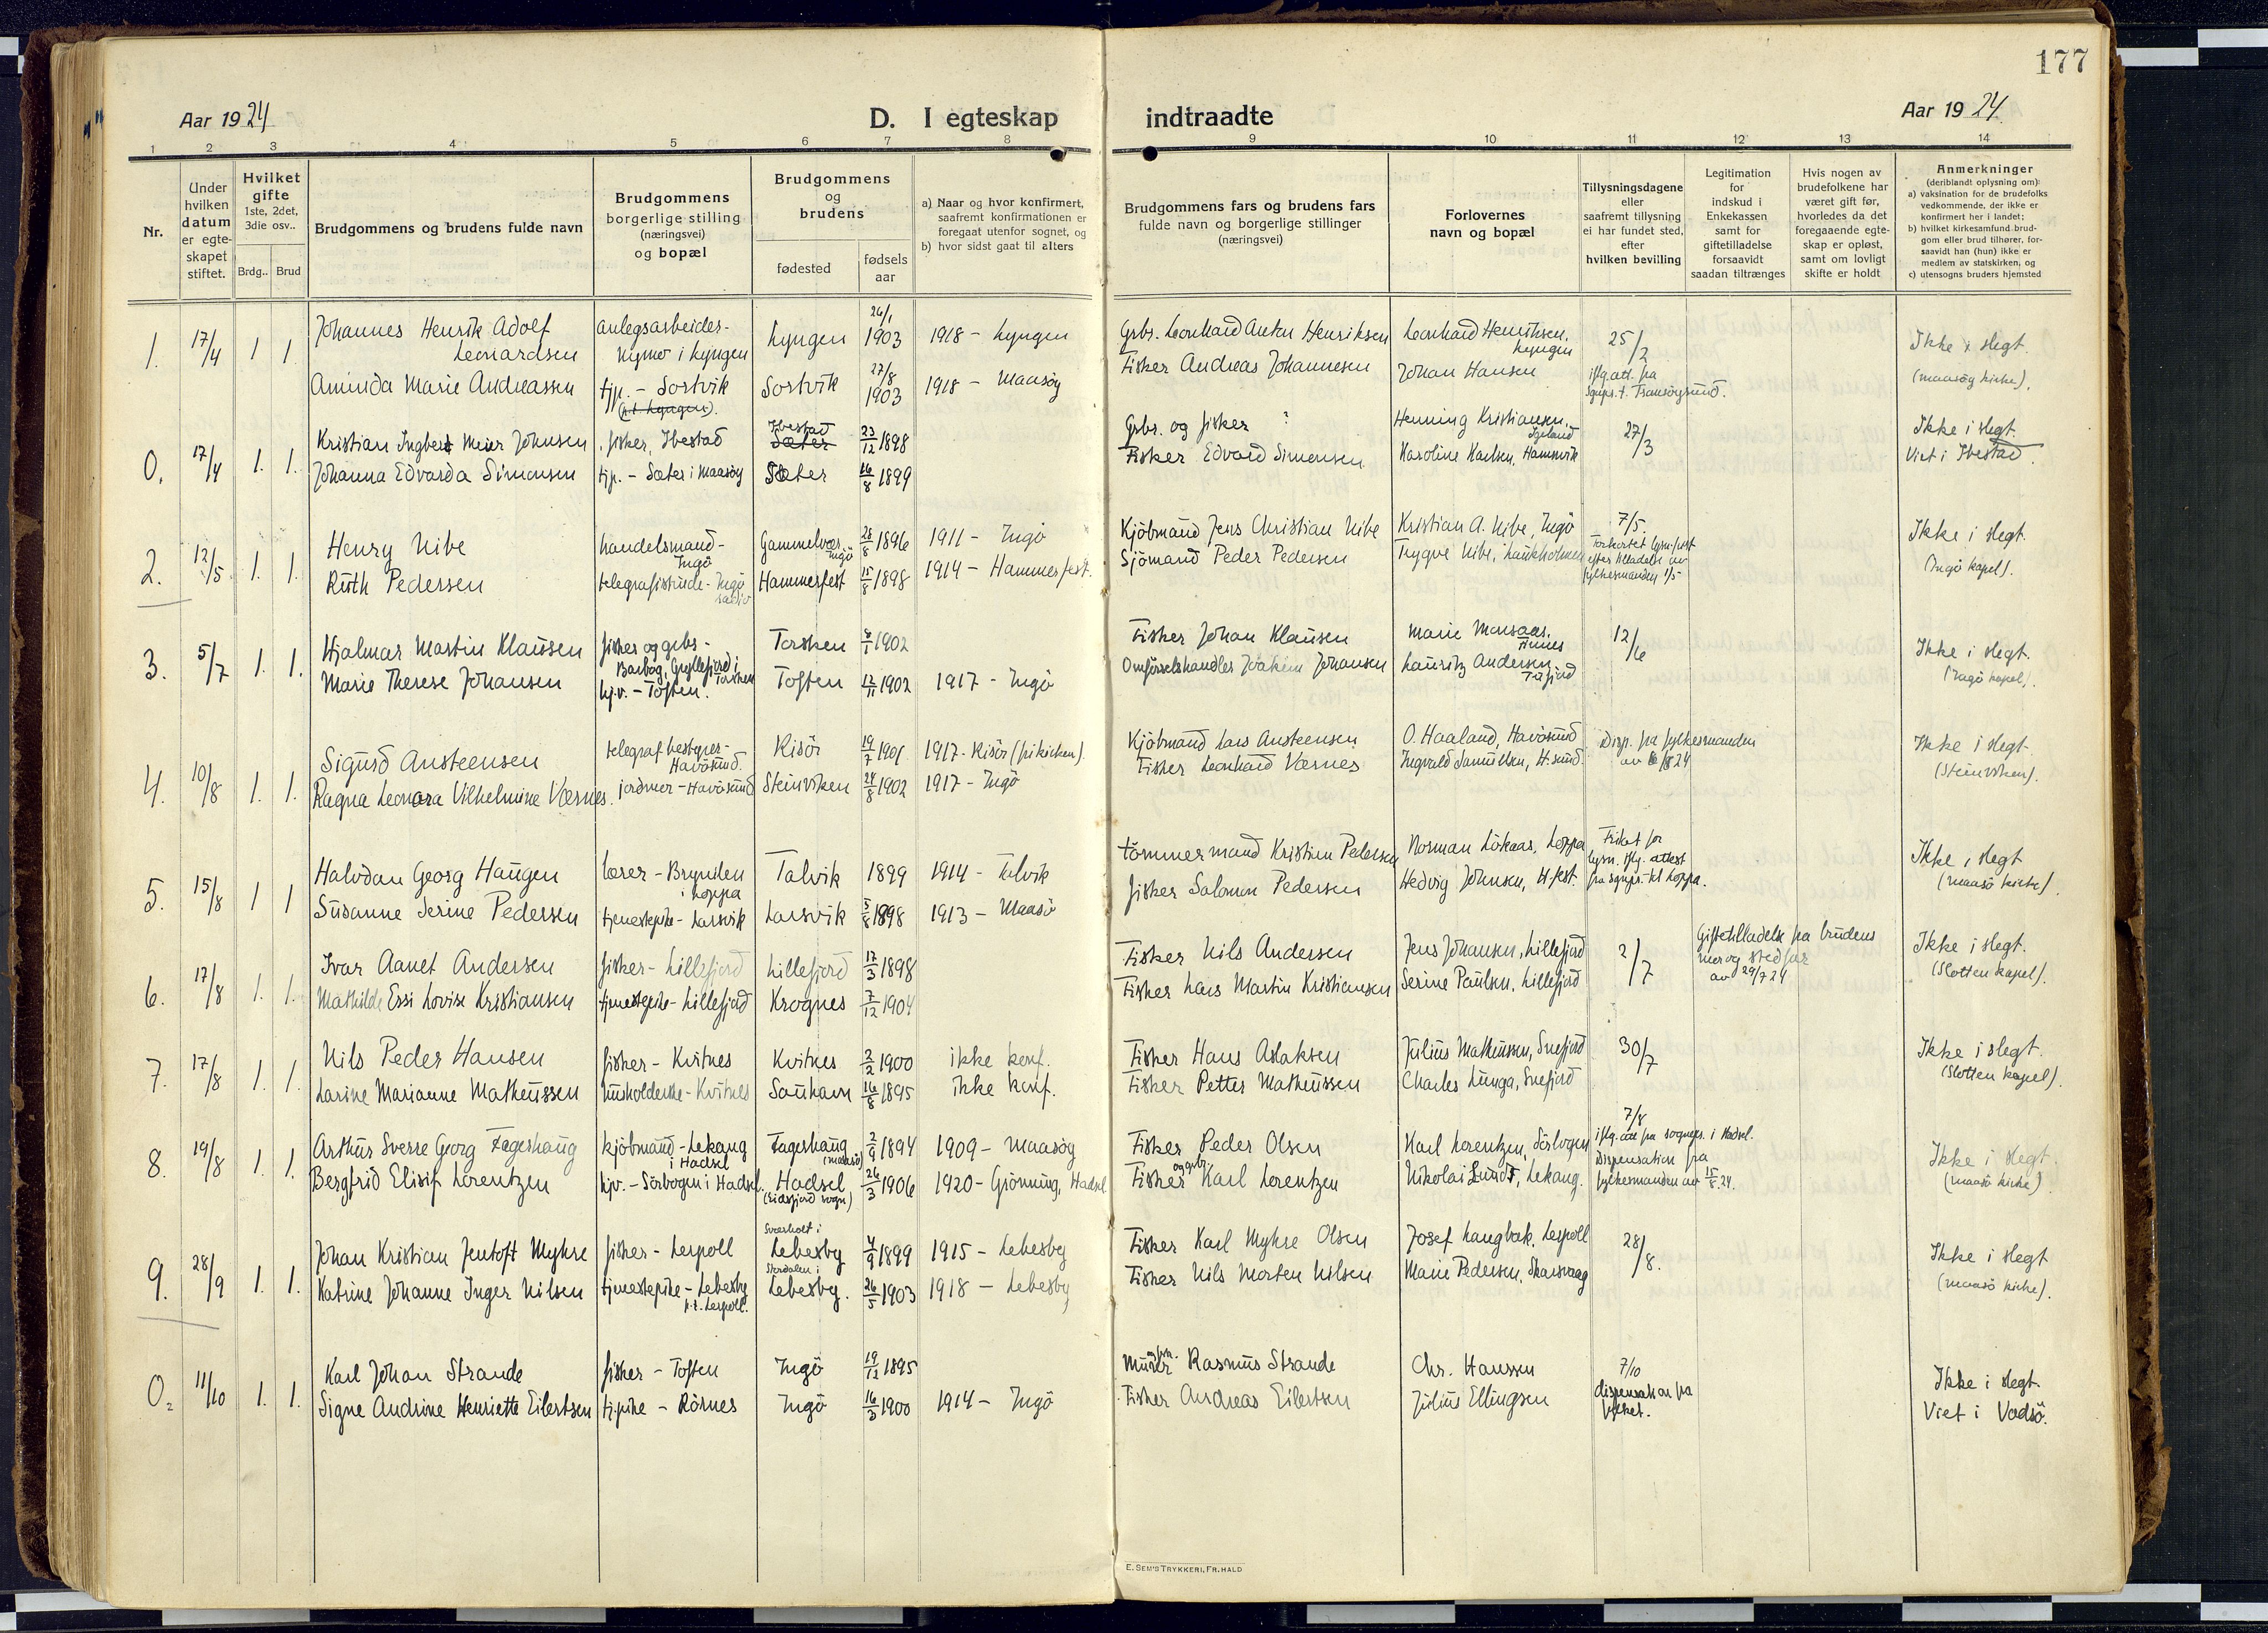 177
Aar 1924
D. I egteskap
indtraadte
Aar 1924
1 2 3 4 5 6 7 8 9 10 11 12 13 14
Nr.
Under hvilken datum er egte-skapet stiftet.
Hvilket gifte 1ste, 2det, 3die osv..
Brdg.. Brud
Brudgommens og brudens fulde navn
Brudgommens borgerlige stilling (næringsvei) og bopæl
Brudgommens og brudens
fødested
fødsels aar
a) Naar og hvor konfirmert, saafremt konfirmationen er foregaat utenfor sognet, og
b) hvor sidst gaat til alters
Brudgommens fars og brudens fars fulde navn og borgerlige stillinger (næringsvei)
Forlovernes navn og bopæl
Tillysningsdagene eller saafremt tillysning ei har fundet sted, efter hvilken bevilling
Legitimation for indskud i Enkekassen samt for giftetilladelse forsaavidt saadan tiltrænges
Hvis nogen av brudefolkene har været gift før, hvorledes da det foregaaende egte-skap er opløst, samt om lovligt skifte er holdt
Anmerkninger
(deriblandt oplysning om):
a) vaksination for de brudefolks vedkommende, der ikke er konfirmert her i landet;
b) hvilket kirkesamfund brud-gom eller brud tilhører, for-saavidt han (hun) ikke er medlem av statskirken, og
c) utensogns bruders hjemsted
1. 17/4 1 1. Johannes Henrik Adolf Leonardsen anlegsarbeider - i Lyngen Lyngen 26/1 1903 1918 - Lyngen Grbr. Leonhard Anton Henriksen Leonhard Henriksen, Lyngen 25/2 Ikke i slegt.
Aminda Marie Andreassen tjp. - Sortvik (p.t. Lyngen). Sortvik 27/8 1903 1918 - Maasöy Fisker Andreas Johannesen Johan Hansen iflg. att. fra sgnpr. t. Tranöysund. (maasöy kirke).
0. 17/4 1. 1. Kristian Ingbert Meier Johnsen fisker, Ibestad Ibestad Sæter 23/12 1898 Grbr. og fisker ? Henning Kristiansen, 27/3 Ikke i slegt.
Johanna Edvarda Simonsen tjp. - Sæter i Maasöy Sæter 16/8 1899 Fisker Edvard Simonsen Karoline Karlsen, Hamnvik Viet i Ibestad.
2. 12/5 1. 1. Henry Nibe handelsmand - Ingö Gammelvær, Ingö 28/8 1896 1911 - Ingö Kjöbmand Jens Christian Nibe Kristian A. Nibe, Ingö 7/5 Ikke i slegt.
Ruth Pedersen telegrafistinde - Ingö radio Hammerfest 15/8 1898 1914 - Hammerfest. Sjömand Peder Pedersen Trygve Nibe, Laukholmen Forkortet lysn.frist efter tilladelse av fylkesmanden 1/5 (Ingö kapel).
3. 5/7 1. 1. Hjalmar Martin Klausen fisker og grbr - Barbog, Gryllefjord i Torsken Torsken 8/1 1902 Fisker Johan Klausen Marie Monsaas, Finnes 12/6 Ikke i slegt.
Marie Therese Johansen hjv. - Toften. Toften 12/11 1902 1917 - Ingö Omförselshandler Joakim Johansen Lauritz Andersen Tufjord (Ingö kapel).
4. 10/8 1. 1. Sigurd Austeensen telegrafbestyrer - Havösund. Risör 19/7 1901 1917 - Risör (frikirken). Kjöbmand Lars Austeensen O. Haaland, Havösund Disp. fra fylkesmanden av 6/8 24 Ikke i slegt
Ragna Leonora Vilhelmine Værnes. jordmor - Havösund Steinviken 24/8 1902 1917 - Ingö Fisker Leonhard Værnes Ingvald Samuelsen, H.sund (Steinviken).
5. 15/8 1 1 Halvdan Georg Haugen lærer - Brynilen i Loppa Talvik 1899 1914 - Talvik Tömmermand Kristian Pedersen Norman Lökaas, Loppa Fritat for lysn. iflg. attest fra sgnpr. til Loppa. Ikke i slegt
Susanne Serine Pedersen tjenestepike - Larsvik Larsvik 5/8 1898 1913 - Maasö fisker Salomon Pedersen Hedvig Johnsen, H.fest. (maasö kirke).
6. 17/8 1. 1. Ivar Aanet Andersen fisker - Lillefjord Lillefjord 17/3 1898 Fisker Nils Andersen Jens Johansen, Lillefjord 2/7 Giftetilladelse fra brudens mor og stedfar av 29/7 24 Ikke i slegt.
Mathilde Essi Lovise Kristiansen tjenestepike - Lillefjord Krognes 7/12 1904 Fisker Lars Martin Kristiansen Serine Paulsen, Lillefjord (Slotten kapel).
7. 17/8 1. 1. Nils Peder Hansen fisker - Kvitnes Kvitnes 2/2 1900 ikke konf. Fisker Hans Aslaksen Julius Matheussen, Snefjord 30/7 Ikke i slegt.
Larine Marianne Matheussen husholderske - Kvitnes Sauhavn 16/8 1895 ikke konf. Fisker Petter Matheussen Charles Lunga, Snefjord (Slotten kapel).
8. 19/8 1. 1. Arthur Sverre Georg Fageshaug kjöbmand - Lekang i Hadsel Fageshaug (Maasö) 2/9 1894 1909 - Maasöy Fisker Peder Olsen Karl Lorentzen, Sörvogen 7/8 iflg. att fra sognepr. i Hadsel. Ikke i slegt.
Bergfrid Elisif Lorentzen hjv. - Sörvogen i Hadsel. Hadsel (Eidsfjord sogn) 26/3 1906 1920 - Grönning, Hadsel Fisker og grbr Karl Lorentzen Nikolai Lund, Lekang. Dispensation fra fylkesmanden av 15/8.24. (maasö kirke)
9. 28/9 1. 1. Johan Kristian Jentoft Myhre fisker - Lerpoll Sværholt i Lebesby 4/9 1899 1915 - Lebesby Fisker Karl Myhre Olsen Josef Langbak, Lerpoll 28/8. Ikke i slegt
Katrine Johanne Inger Nilsen tjenestepike - Lebesby p.t. Lerpoll. Lebesby. 26/5 1903 1918 - Lebesby Fisker Nils Morten Nilsen Marie Pedersen, Skarsvaag (maasö kirke).
0. 11/10 1. 1. Karl Johan Strande fisker - Toften Ingö 19/12 1895 Murer Rasmus Strande Chr. Hanssen 7/10 Ikke i slegt.
Signe Andrine Henriette Eilertsen tj.pike - Rörnes Ingö 16/3 1900 1914 - Ingö Fisker Andreas Eilertsen Julius Ellingsen dispensation fra fylket. Viet i Vadsö.
E. SEM'S TRYKKERI, FR.HALD